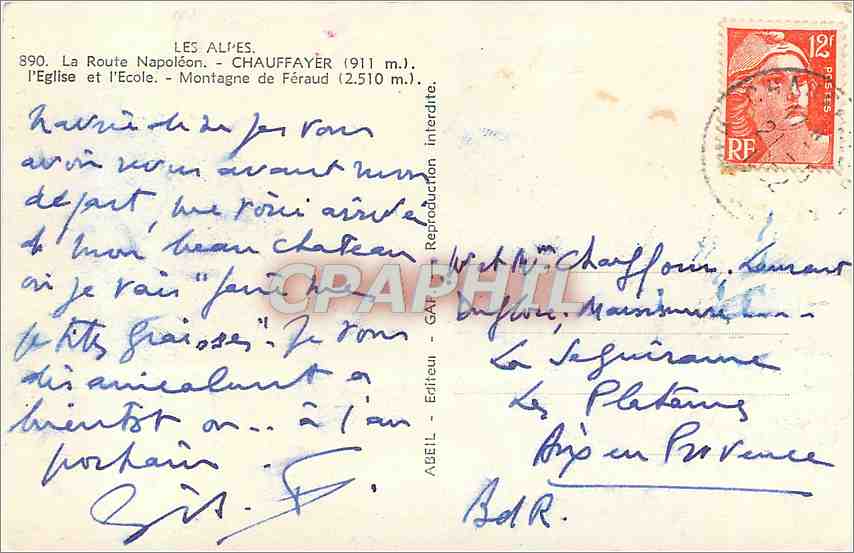 LES ALPES.
890. La Route Napoléon. - CHAUFFAYER (911 m.).
l'Eglise et l'Ecole. - Montagne de Féraud (2.510 m.).
Navrée de ne pas vous
avoir revus avant mon
départ, me voici arrivée
d mon beau chateau
où je vais "faire mes
petites graisses". Je vous
dis amicalement a
bientôt ou.. à l'an
prochain.
ABEIL - Editeur - GAP - Reproduction interdite.
12f
POSTES
RF
M et Mm Chauffour, Laurent
La Seguiranne
Les Platanes
Aix en Provence
BdR.
CPAPHIL